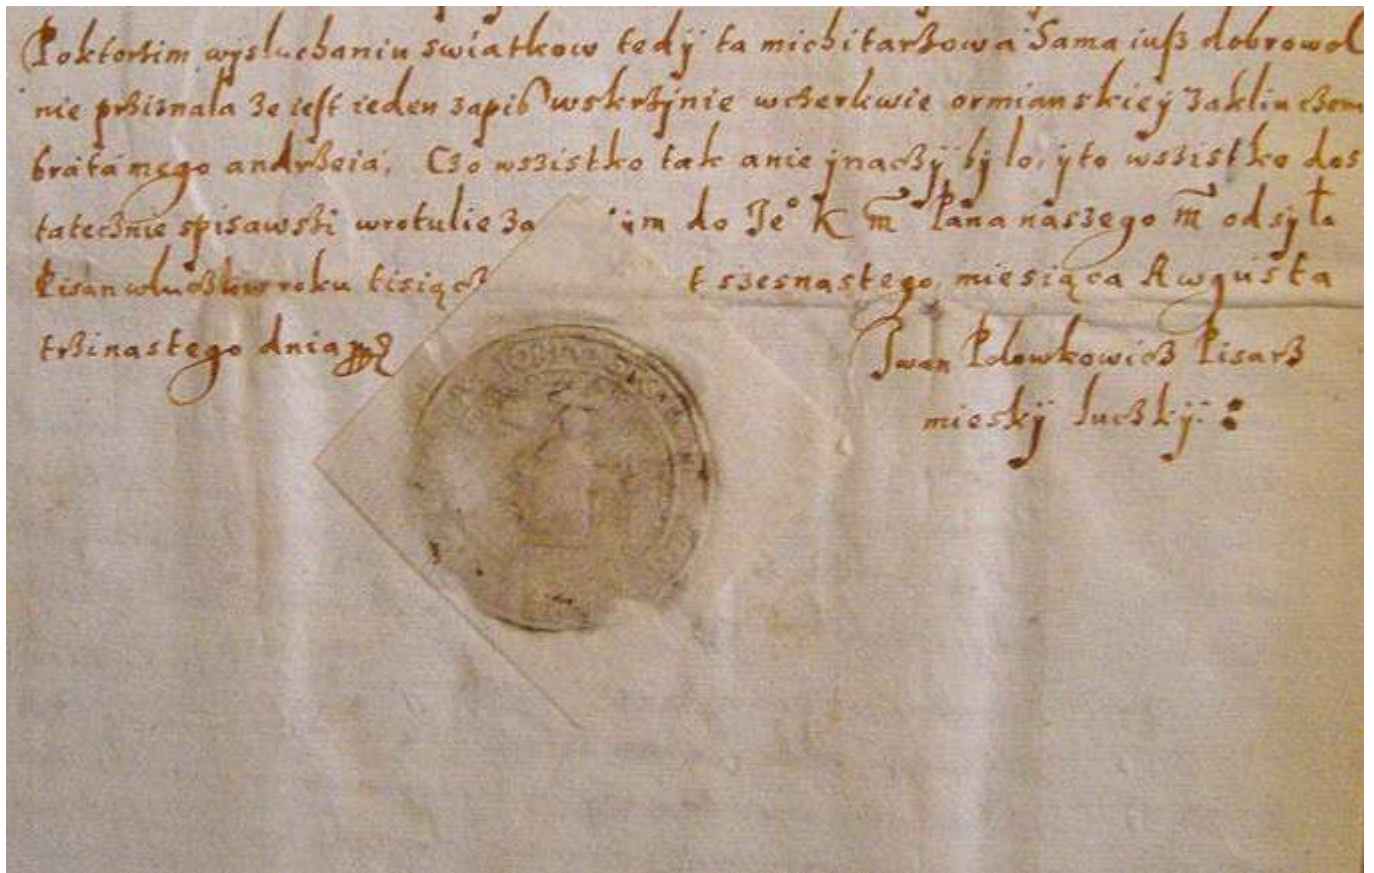 Poktorzim wysluchaniu swiatkow tedÿ ta michitarzowa sama iusz dobrowol
nie prziznala ze iest ieden zapis wskrzÿnie wczerkwie ormianskieÿ zakliuczem
brata mego andrzeia, Czo wszistko tak anie ÿnaczÿ bÿlo, ÿto wszistko dos
tatecznie spisawszi wrotulie za do Je° K m̃ Pana naszego m̃ odsÿła
Pisan roku tisiącz t szesnastego miesiąca Awgusta
trzinastego dnia
Iwan Pisarz
mieskÿ luczkÿ: